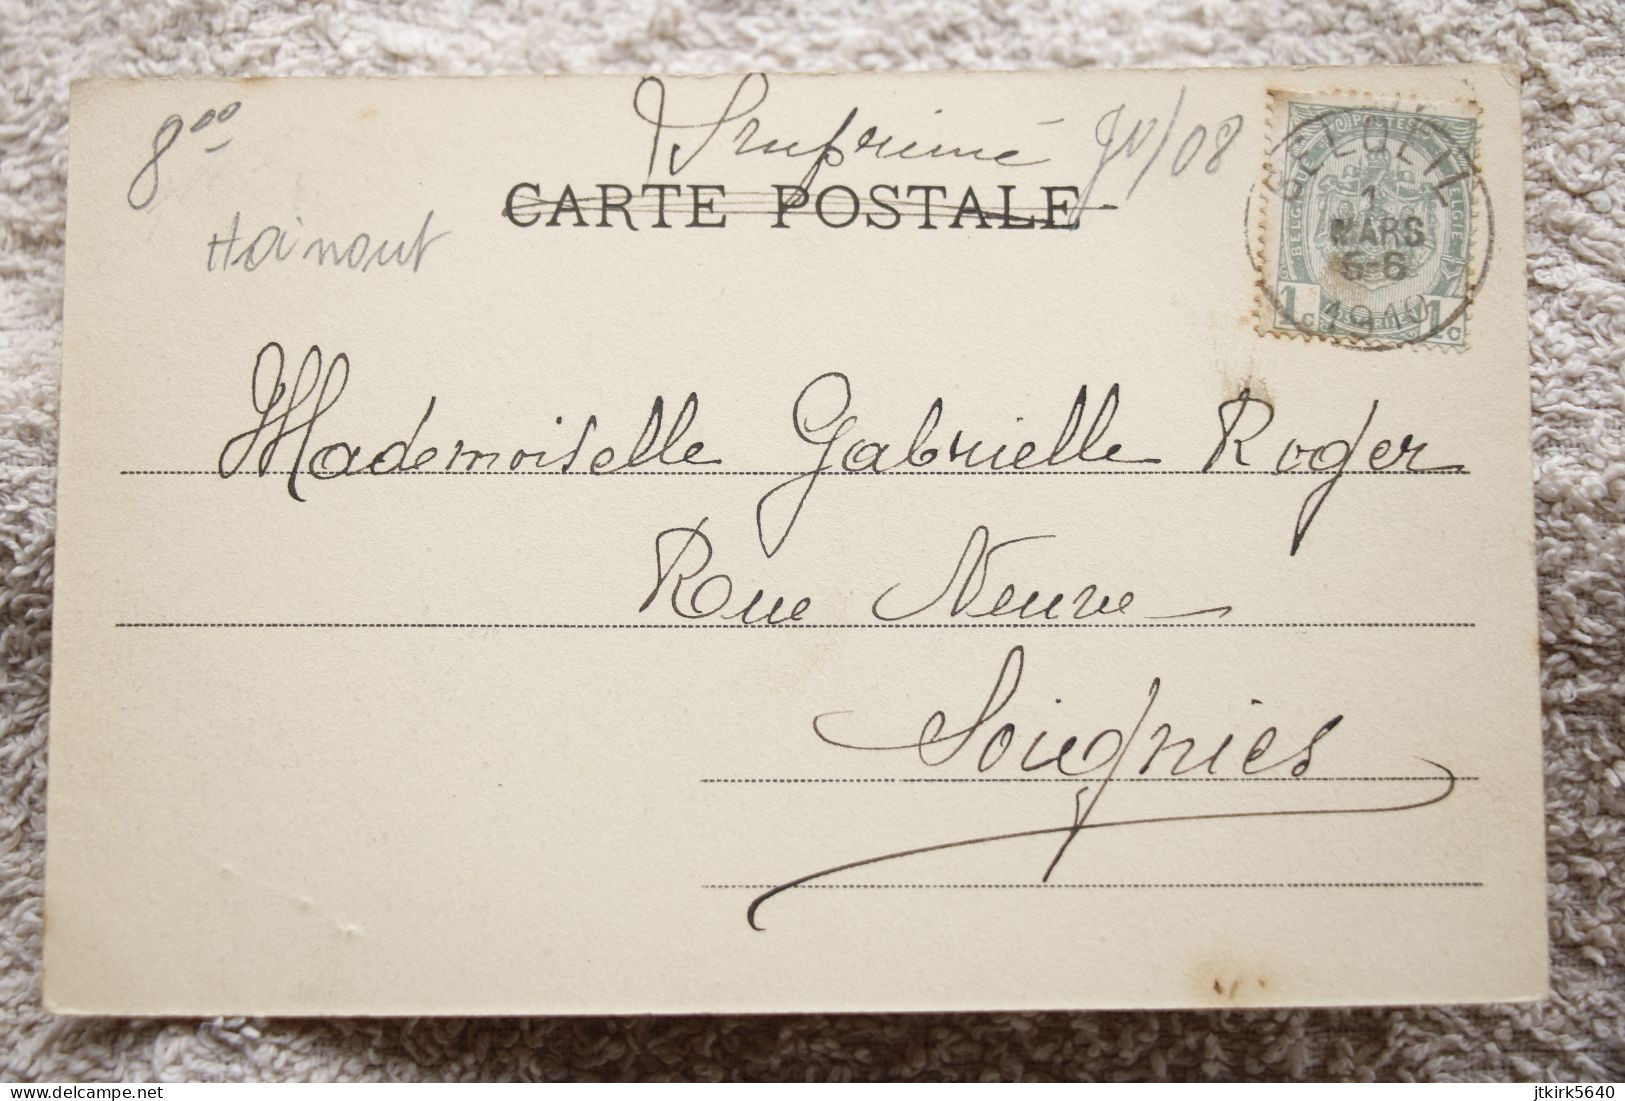 8 00
Imprimé
/08
CARTE POSTALE
Hainaut
POSTES
BELGIE
1c 1c
BELOEIL
1
MARS
5-6
1910
Mademoiselle Gabrielle Roger
Rue Neuve
Soignies
delcampe.net
jtkirk5640